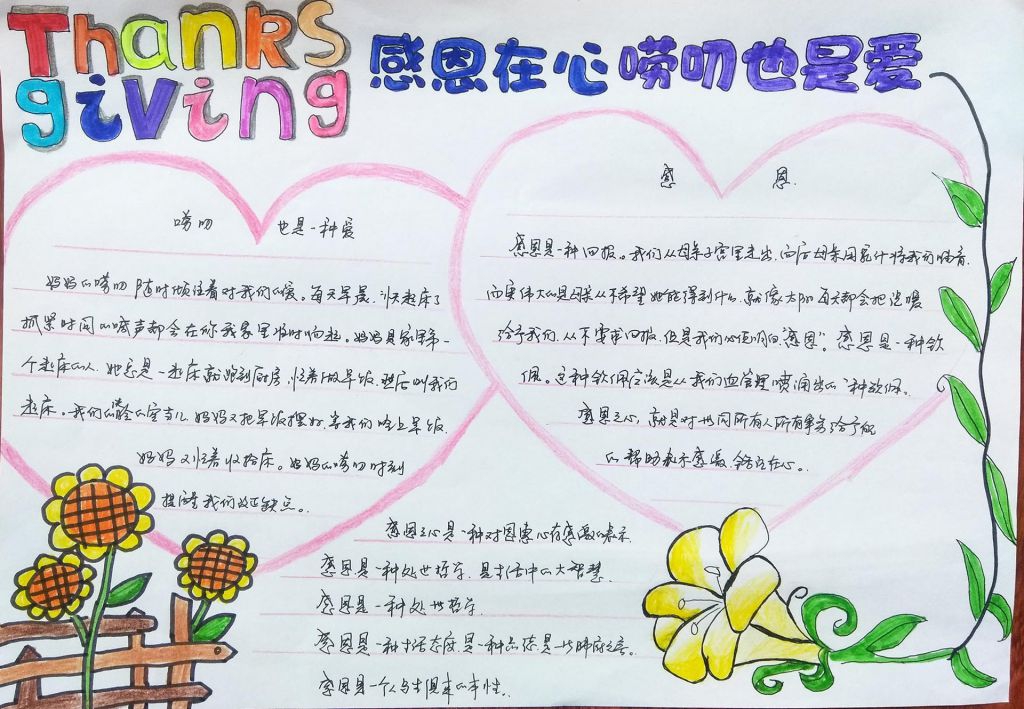 Thanks
giving
感恩在心唠叨也是爱
唠叨 也是一种爱
妈妈的唠叨随时倾注着对我们的爱。每天早晨,快起床了
抓紧时间的喊声都会在你我家里临时响起。妈妈是家里第一
个起床的人。她总是一起床就跑到厨房,忙着做早饭,然后叫我们
起床。我们的穿衣儿,妈妈又把早饭摆好,等我们吃上早饭,
妈妈又忙着收拾床。妈妈的唠叨时刻
提醒我们改正缺点。
感 恩
感恩是一种回报。我们从母亲子宫里走出,而后母亲用乳汁将我们哺育,
而更伟大的是母亲从不希望她能得到什么,就像太阳每天都会把温暖
给予我们,从不要求回报,但是我们必须明白"感恩"。感恩是一种钦
佩。这种钦佩应该是从我们血管里喷涌出的一种钦佩。
感恩之心,就是对世间所有人所有事务给予的
的帮助表示感激,铭记在心。
感恩之心是一种对恩惠心存感激的表示
感恩是一种处世哲学,是生活中的大智慧
感恩是一种处世哲学,
感恩是一种生活态度,是一种品德,是一片肺腑之言。
感恩是一个人与生俱来的本性,